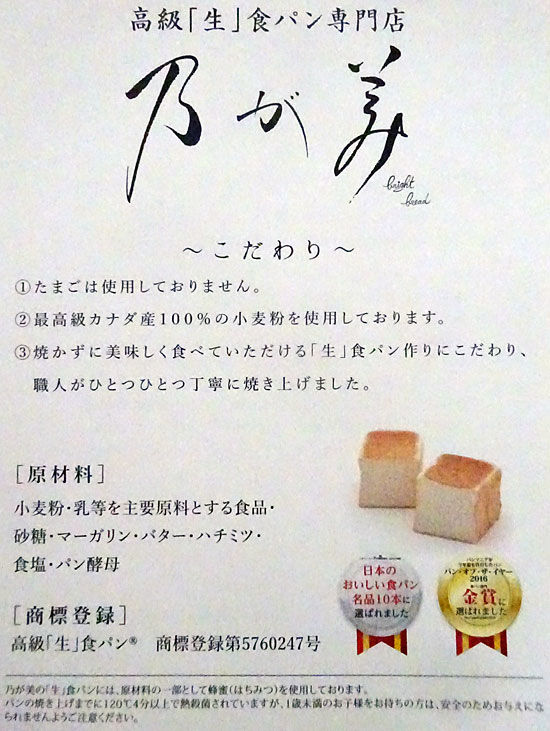 高級「生」食パン専門店
乃が美
bright
bread
～こだわり～
①たまごは使用しておりません。
②最高級カナダ産100%の小麦粉を使用しております。
③焼かずに美味しく食べていただける「生」食パン作りにこだわり、
職人がひとつひとつ丁寧に焼き上げました。
[原材料]
小麦粉・乳等を主要原料とする食品・
砂糖・マーガリン・バター・ハチミツ・
食塩・パン酵母
日本の
おいしい食パン
名品10本に
選ばれました
パンマニアが
パン・オブ・ザ・イヤー
2016
食パン部門
金賞に
選ばれました
[商標登録]
高級「生」食パン® 商標登録第5760247号
乃が美の「生」食パンには、原材料の一部として蜂蜜(はちみつ)を使用しております。
パンの焼き上げまでに120℃4分以上で熱殺菌されていますが、1歳未満のお子様をお持ちの方は、安全のためお与えにな
られませんようご注意ください。